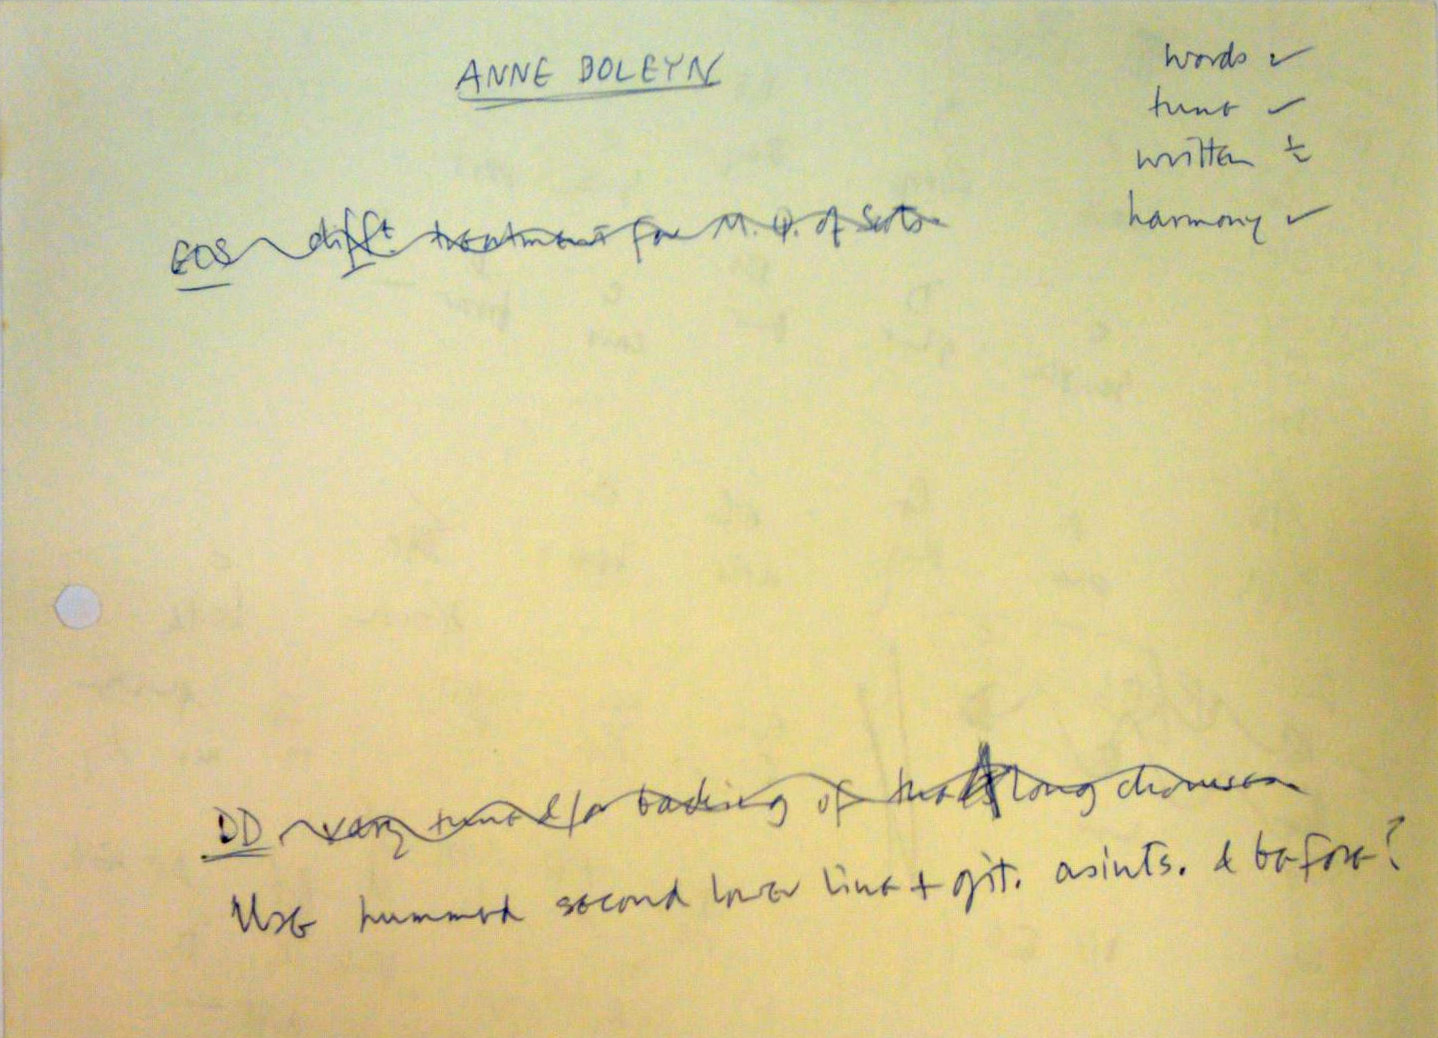 ANNE BOLEYN
words ✓
tune ✓
written ÷
harmony ✓
EOS difft. treatment for M. Q. of Scots
DD vary tune &/or backing of the long choruses
Use hummed second lower line + git. as ints. & before?